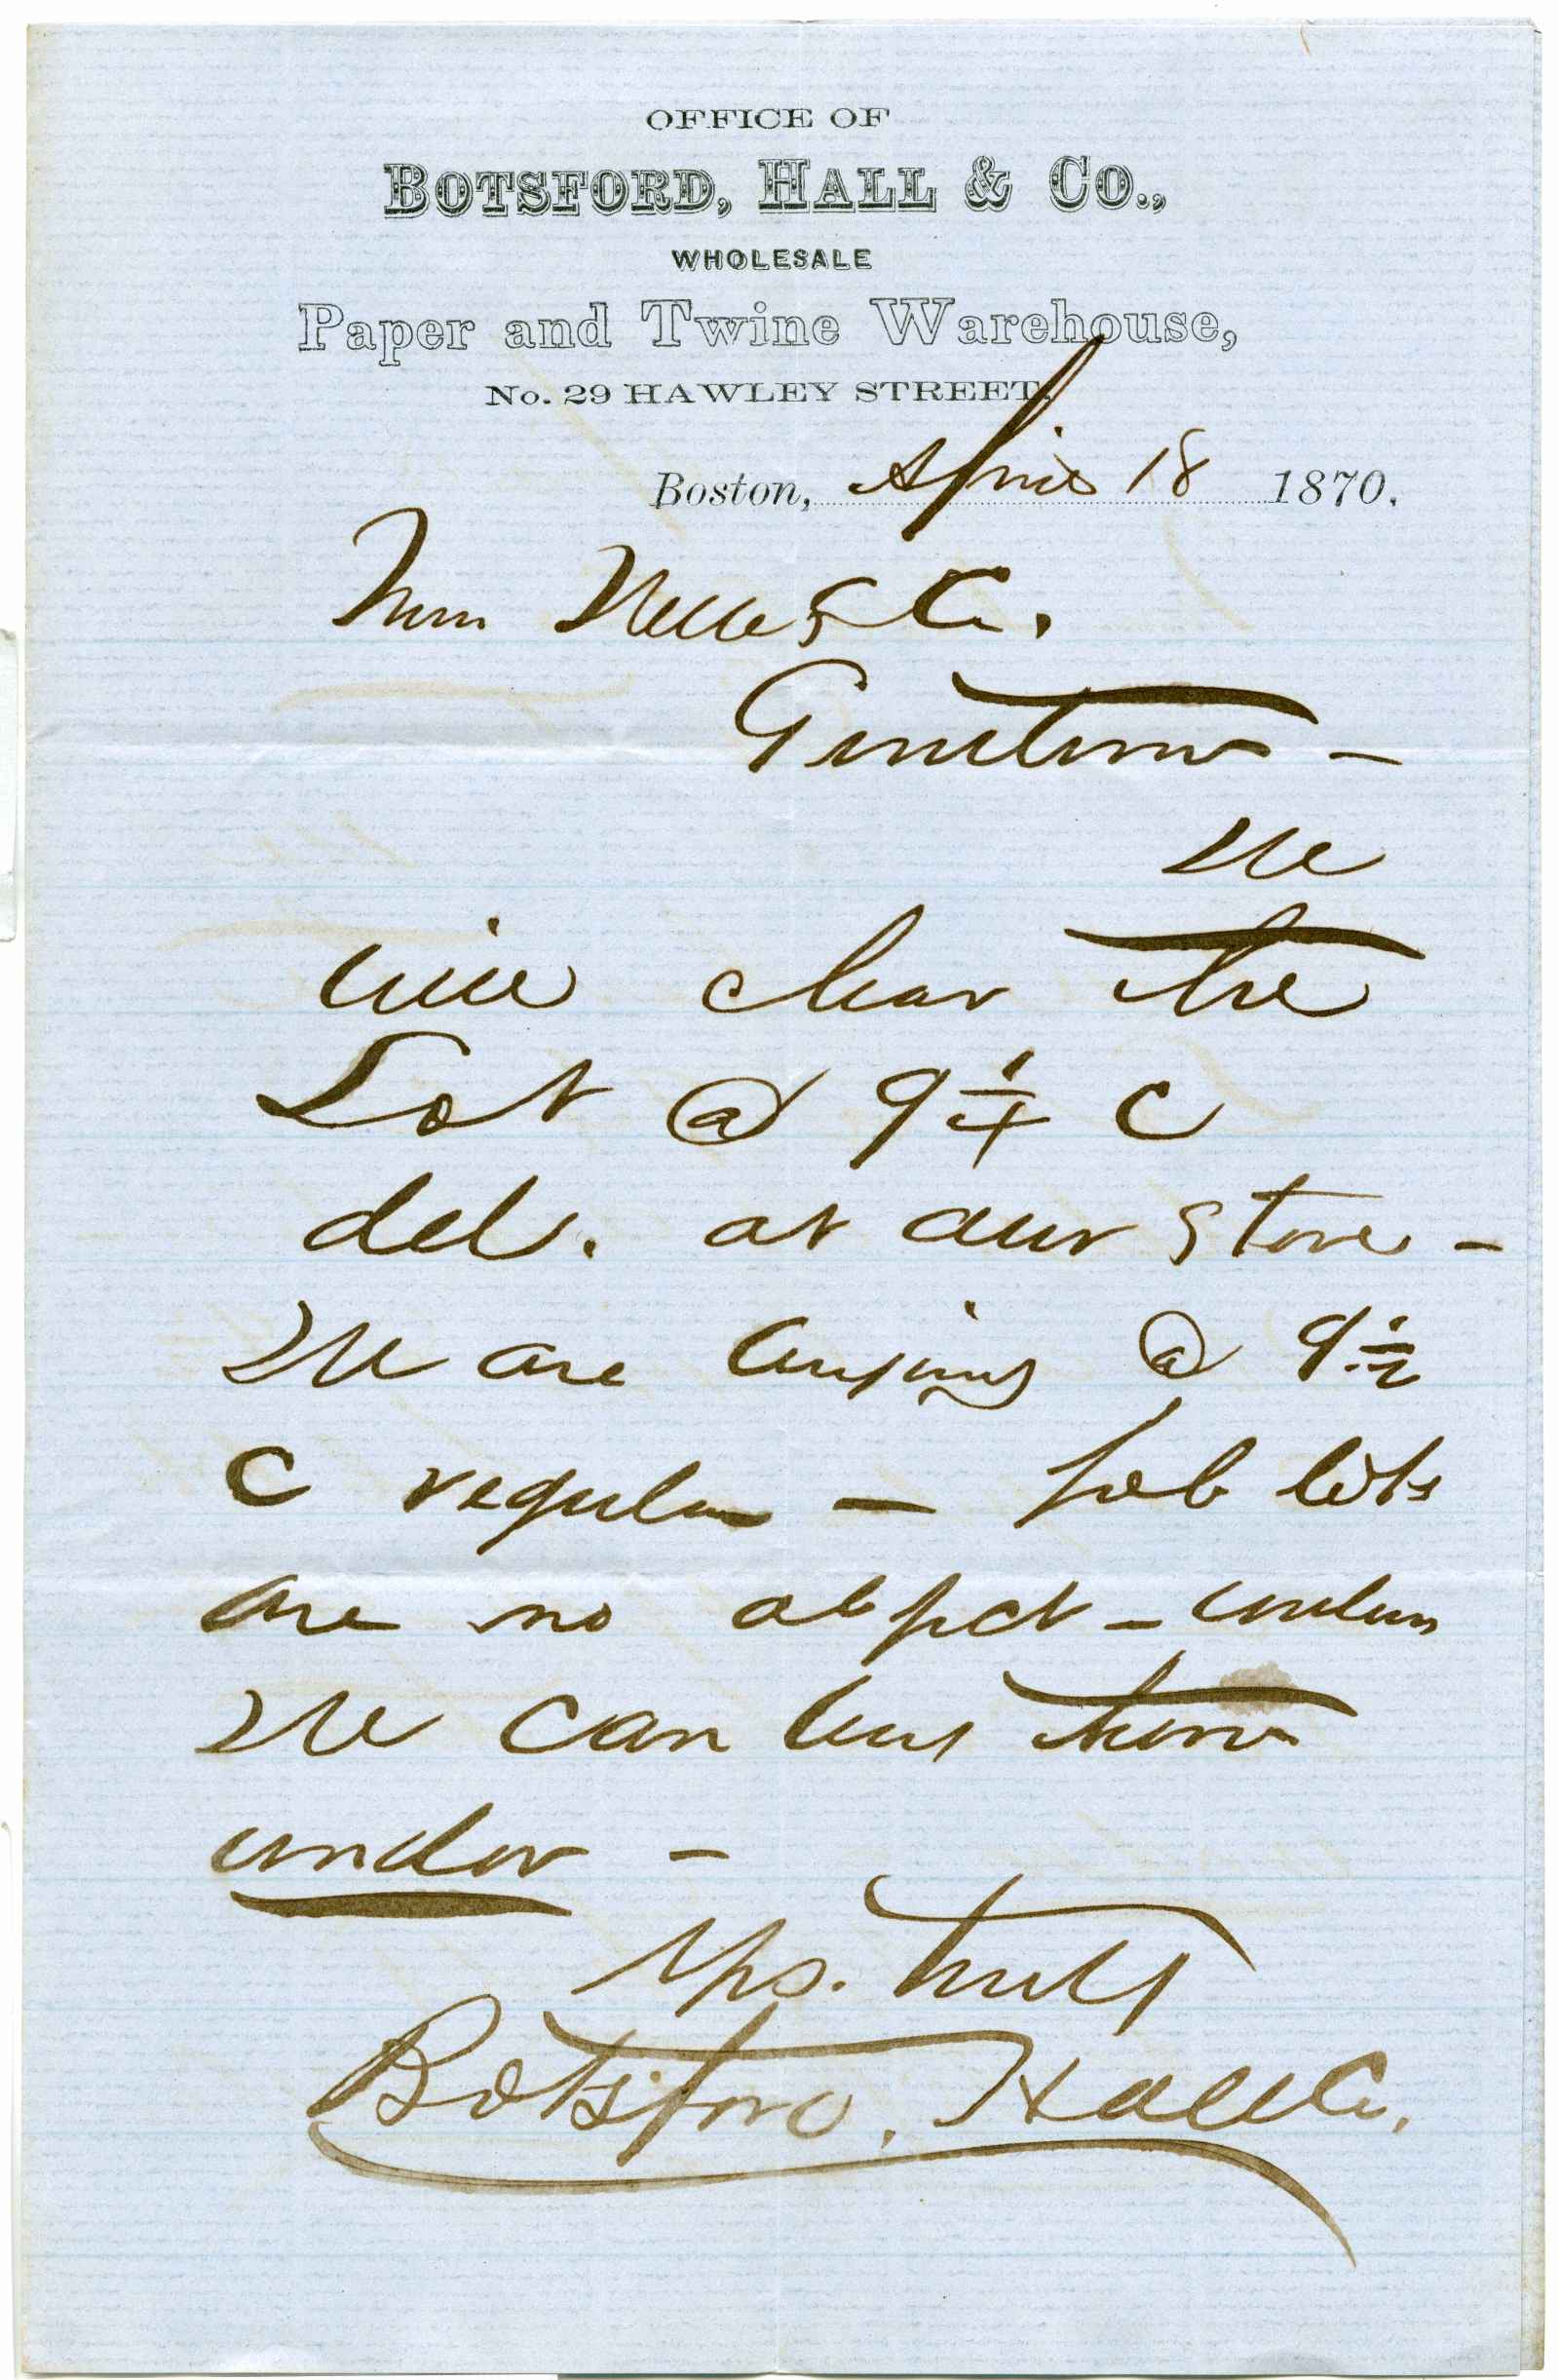 OFFICE OF
BOTSFORD, HALL & CO.,
WHOLESALE
Paper and Twine Warehouse,
No. 29 HAWLEY STREET.
Boston, April 18 1870.
& Co.
Gentlemen —
We
will clear the
Lot @ 9 1/4 c
del. at our store —
We are buying @ 9 1/2
c regular — Job lots
are no object — unless
We can buy them
under —
Yrs. truly
Botsford, Hall & Co.